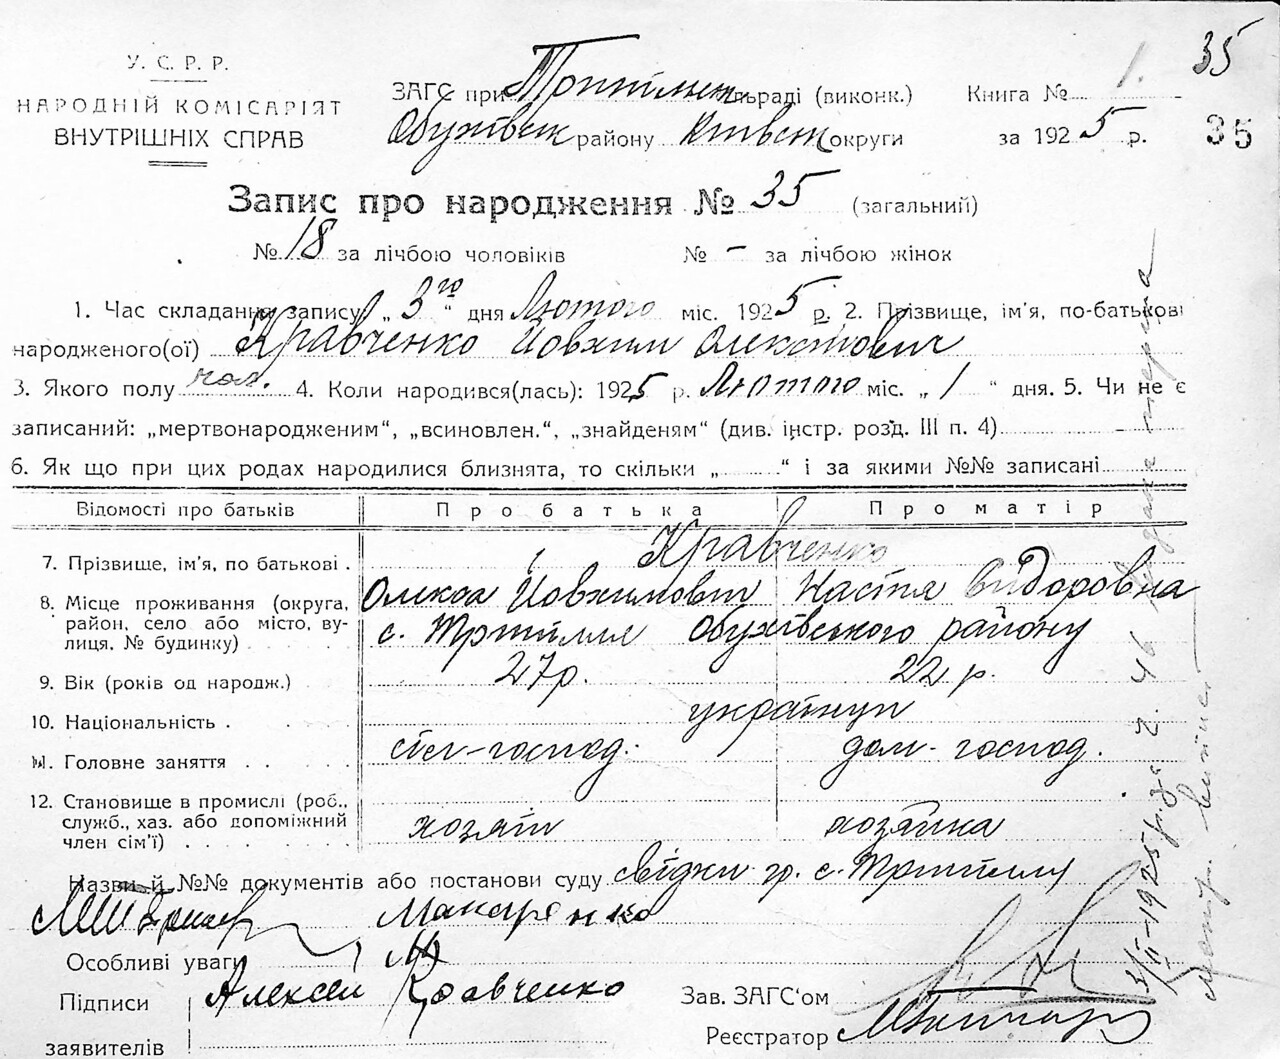 35
У. С. Р. Р.
НАРОДНІЙ КОМІСАРІЯТ
ВНУТРІШНІХ СПРАВ
ЗАГС при сільраді (виконк.) Книга № 1.
Обухівськ району Київськ округи за 1925 р. 35
Запис про народження № 35 (загальний)
№ 18 за лічбою чоловіків № - за лічбою жінок
1. Час складання запису „3го" дня Лютого міс. 1925 р. 2. Прізвище, ім'я, по-батькові
народженого(ої) Кравченко Йовхим Олексійович
3. Якого полу чол. 4. Коли народився(лась): 1925 р. Лютого міс. „1" дня. 5. Чи не є
записаний: „мертвонародженим", „всиновлен.", „знайденям" (див. інстр. розд. III п. 4)
6. Як що при цих родах народилися близнята, то скільки „ " і за якими №№ записані
Відомості про батьків Про батька Про матір
Кравченко
7. Прізвище, ім'я, по батькові . Олекса Йовхимович Настя Сидоровна
8. Місце проживання (округа, район, село або місто, вулиця, № будинку) с. Трипілля Обухівського району
9. Вік (років од народж.) 27 р. 22 р.
10. Національність . українці
11. Головне заняття . сіл-господ. дом-господ.
12. Становище в промислі (роб., служб., хаз. або допоміжний член сім'ї) хозяїн хозяйка
Назви й №№ документів або постанови суду с. Трипілля
Макаренко
Особливі уваги
Підписи Алексей Кравченко Зав. ЗАГС'ом
заявителів Реєстратор